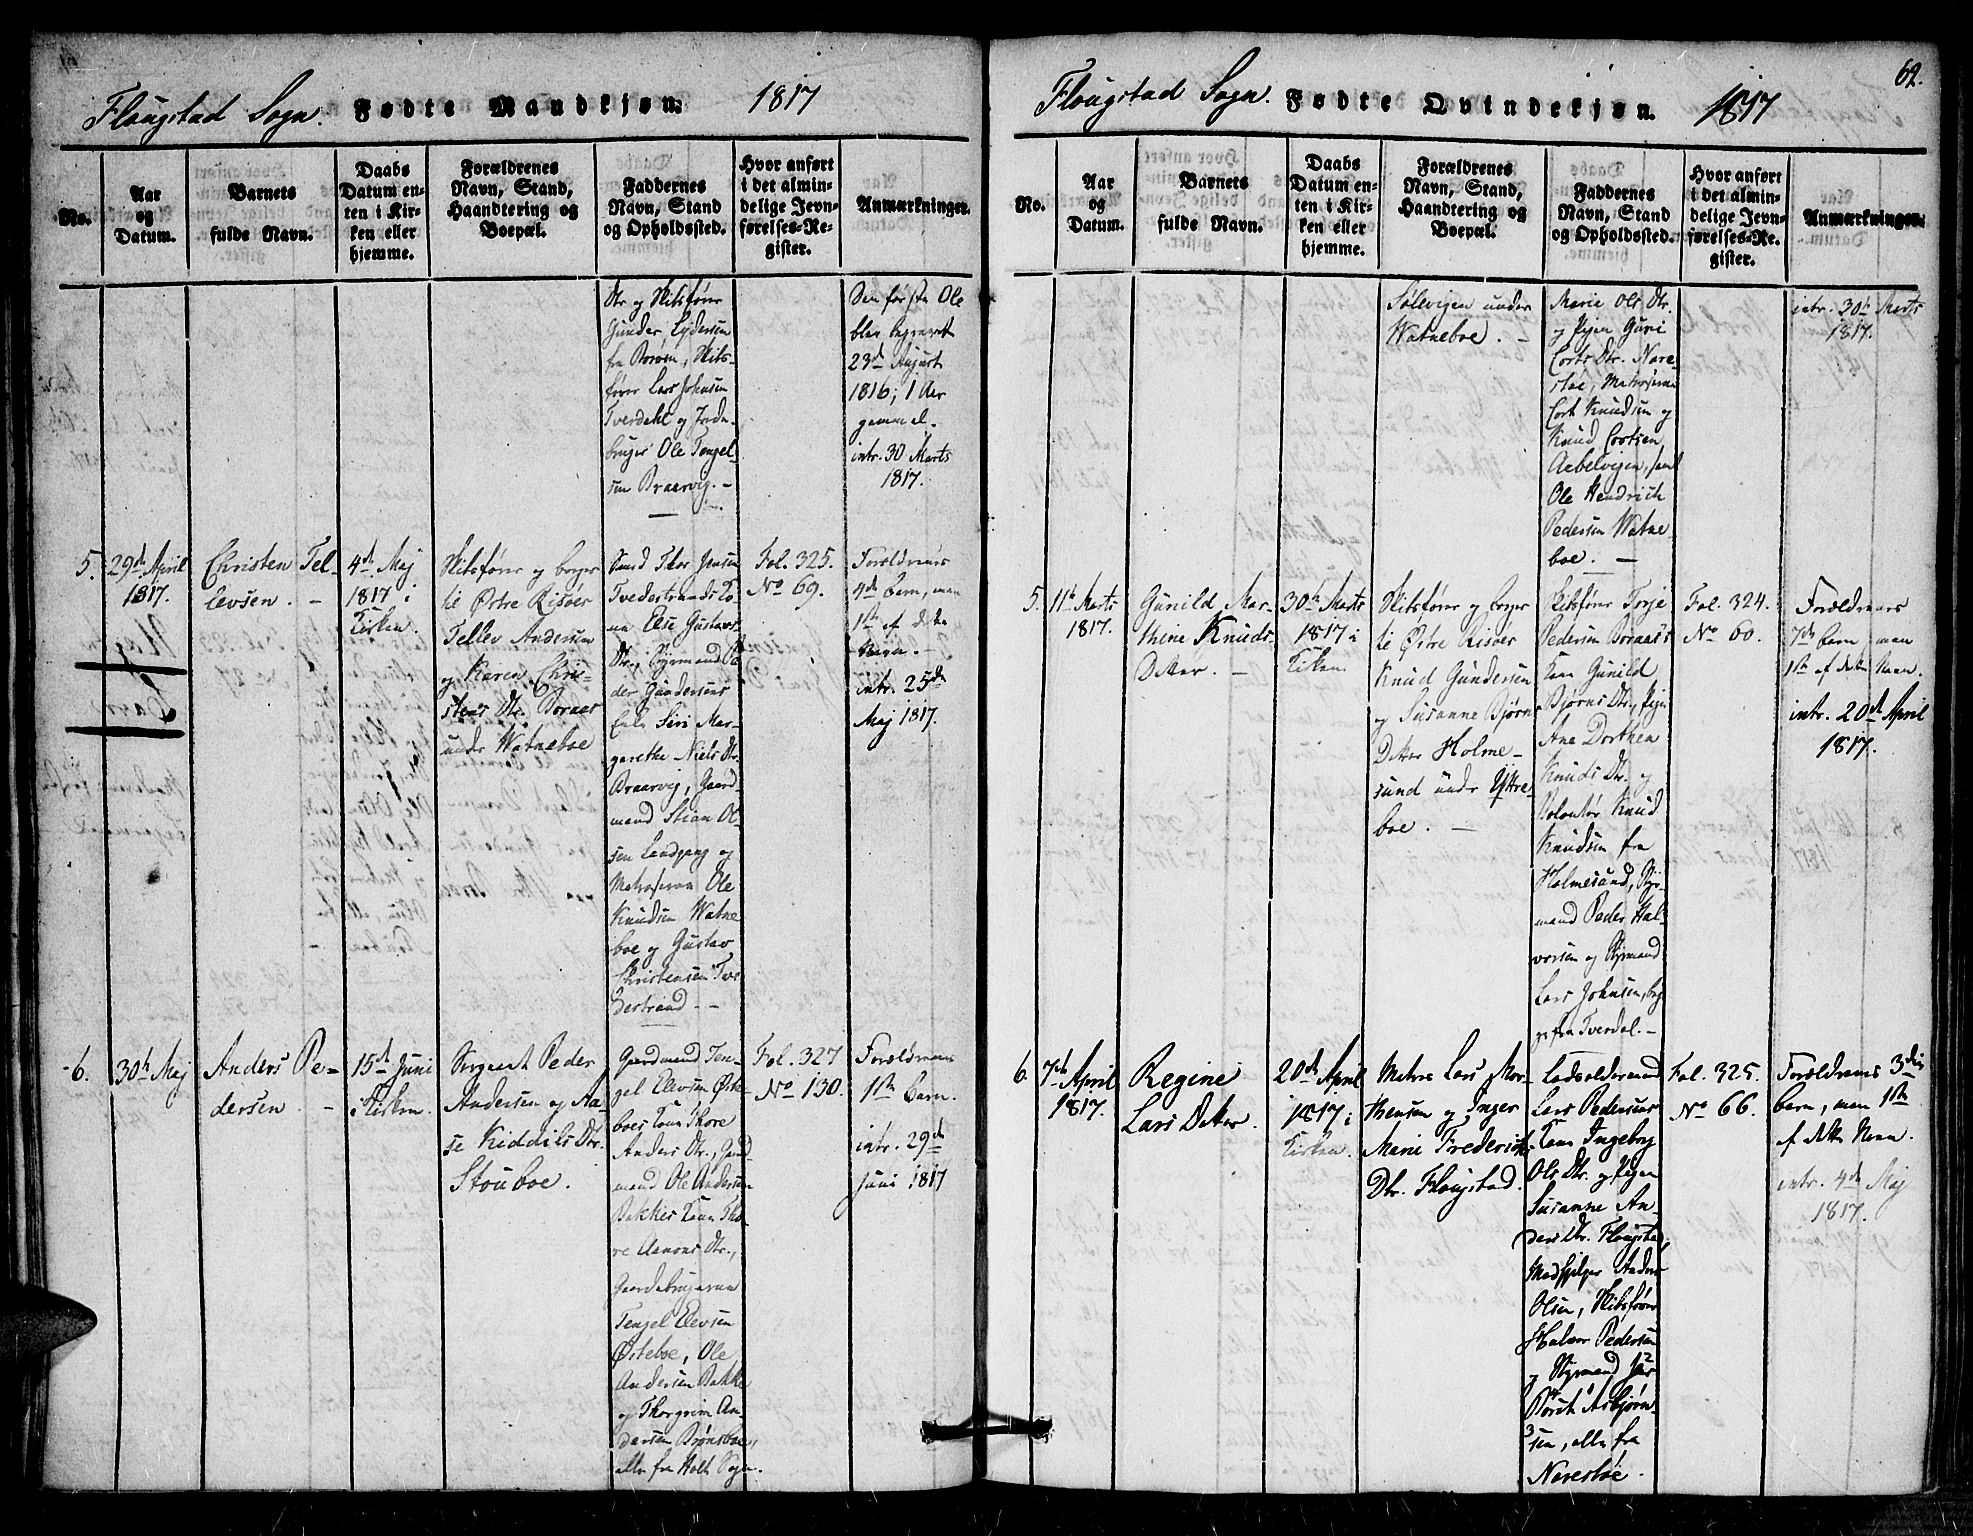 Flougstad Sogn. Fødte Mandkjøn. 1817
No.
Aar
og
Datum.
Barnets
fulde Navn.
Daabs
Datum en-
ten i Kir-
ken eller
hjemme.
Forældrenes
Navn, Stand,
Haandtering og
Boepæl.
Faddernes
Navn, Stand
og Opholdssted.
Hvor anført
i det almin-
delige Jevn-
førelses-Re-
gister.
Anmærkninger.
Dtr. og Skibsfører
Gunder Lydersen
fra Borøen, Skibs-
fører Lars Johnsen
Tverdahl og Jord-
bruger Ole Tengel-
sen Braarvig. -
Den første Ole
blev begravet
23de August
1816, 1 Aar
gammel.
intr. 30 Marts
1817.
5.
29de April
1817.
Christen Tel-
levsen. -
4de Maj
1817 i
Kirken.
Skibsfører og borger
til Østre Risøer
Tellev Andersen
og Karen Chris-
stens Dtr. Boraas
under Watneboe
Smed Thor Jensen
Tvedestrands Ko-
na Else Gustavs
Dtr., Styrmand Pe-
der Gundersens
Siri Mar-
garethe Niels Dtr.
Braarvig, Gaard-
mand Stian Ol-
sen Landgang og
Matroserne Ole
Knudsen Watne
boe og Gustav
Christensen Tve-
destrand. -
Fol. 325.
No 69.
Forældrenes
4de barn, men
1ste af dette
Navn. -
intr. 25de
Maj 1817.
6.
30te Maj
Anders Pe-
dersen. -
15de Juni
i Kirken.
Sergeant Peder
Andersen og Aa-
se Kiddils Dtr.
Stouboe.
Gaardmand Ten-
gel Elevsen Øste-
boes Kone Thore
Anders Dtr., Gaard-
mand Ole Andersen
Bakkes Kone Tho-
re Aanons Dtr.,
Gaardebrugerne
Tengel Elevsen
Østeboe, Ole
Andersen Bakke
og Thorgrim An-
dersen Brønsboe,
alle fra Holt Sogn.
Fol. 327
No 130.
Forældrenes
1ste barn.
intr. 29de
Juni 1817
62.
Flougstad Sogn. Fødte Qvindekjøn. 1817
No.
Aar
og
Datum.
Barnets
fulde Navn.
Daabs
Datum en-
ten i Kir-
ken eller
hjemme.
Forældrenes
Navn, Stand,
Haandtering og
Boepæl.
Faddernes
Navn, Stand
og Opholdssted.
Hvor anført
i det almin-
delige Jevn-
førelses-Re-
gister.
Anmærkninger.
Sølevigen under
Watneboe. -
Marie Ols Dtr.
og Pigen Guri
Corts Dtr. Nare-
støe, Matroserne
Cort Knudsen og
Knud Cortsen
Aabelvigen, samt
Ole Hendrich
Pedersen Watne
boe. -
intr. 30te Marts
1817.
5.
11te Marts
1817.
Gunild Mar-
thine Knuds-
Datter. -
30te Marts
1817 i
Kirken.
Skibsfører og borger
til Østre Risøer
Knud Gundersen
og Susanne Bjørns
Datter Holme-
sund under Yttre-
boe. -
Skibsfører Torje
Pedersen Boraas's
Kone Gunild
Bjørns Dtr., Pigen
Ane Dorthea
Knuds Dtr. og
Volontør Knud
Knudsen fra
Holmesund, Styr-
mand Peder Hal-
vorsen og Styrmand
Lars Johnsen, beg-
ge fra Tverdal. -
Fol. 324.
No 60.
Forældrenes
7de barn, men
1ste af dette Navn.
intr. 20de April
1817.
6.
7de April
1817.
Regine
Lars Datter.
20de April
1817 i
Kirken.
Matros Lars Mor-
thensen og Inger
Marie Frederichs
Dtr. Flougstad.
Lodsoldermand
Lars Pedersens
Kone Ingeborg
Ols Dtr. og Pigen
Susanne An-
ders Dtr. Flougstad,
Anders
Olsen, Skibsfører
Halvor Pedersen
og Styrmand
Asbjørn-
sen, alle fra
Narestøe.
Fol. 325.
No 66.
Forældrenes 3die
barn, men 1ste
af dette Navn.
intr. 4de Maj
1817.